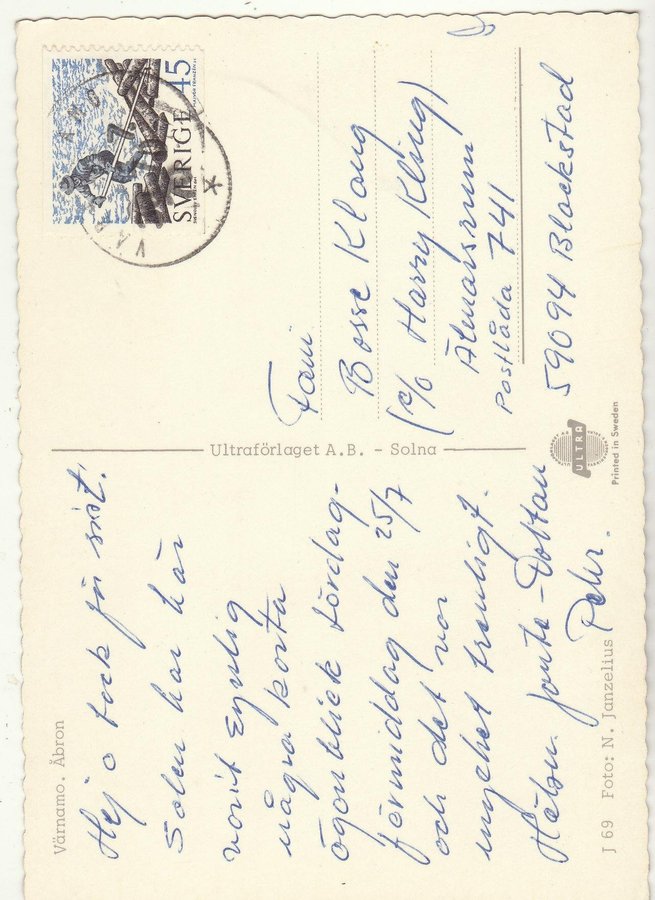 Värnamo. Åbron
Hej o tack för sist!
Solen har här
varit synlig
några korta
ögonblick lördag-
förmiddag den 25/7
och det var
mycket trevligt.
Hälsn. Jonte-Dottan
Pehr.
J 69 Foto: N. Janzelius
Ultraförlaget A.B. - Solna
ULTRA
Printed in Sweden
SVERIGE 45
Fam
Bosse Klang
(c/o Harry Kling)
Älmarsrum
Postlåda 741
59094 Blackstad